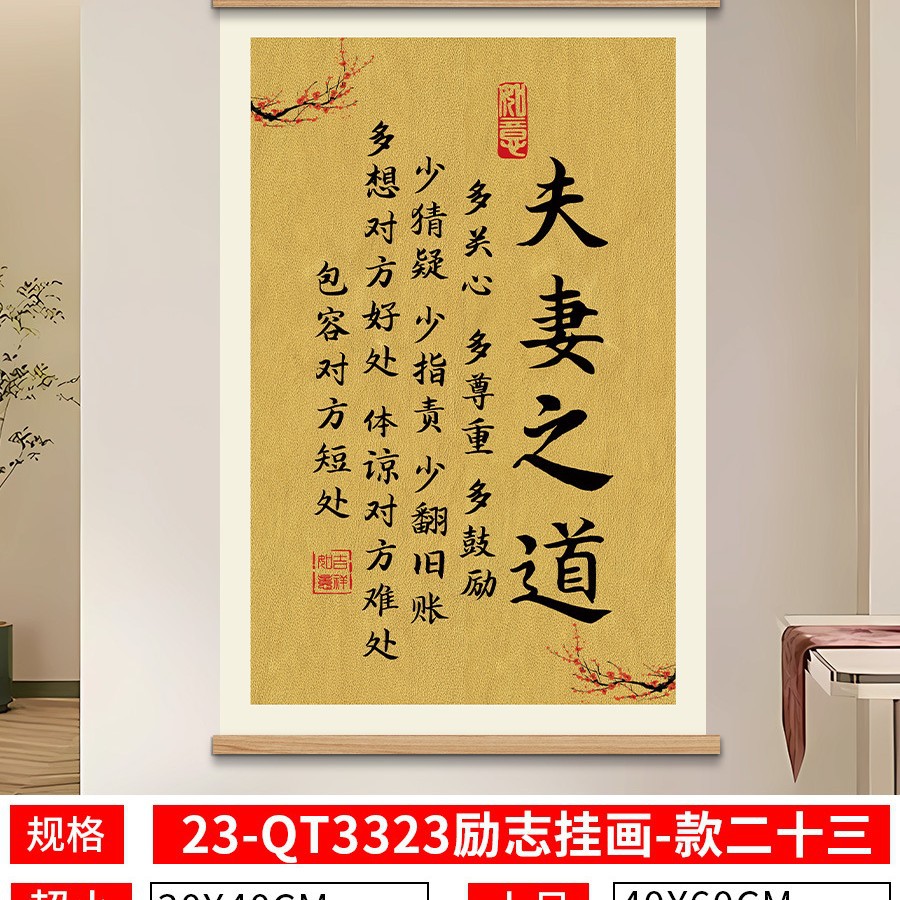 如意
夫妻之道
多关心 多尊重 多鼓励
少猜疑 少指责 少翻旧账
多想对方好处 体谅对方难处
包容对方短处
吉祥如意
规格
23-QT3323励志挂画-款二十三